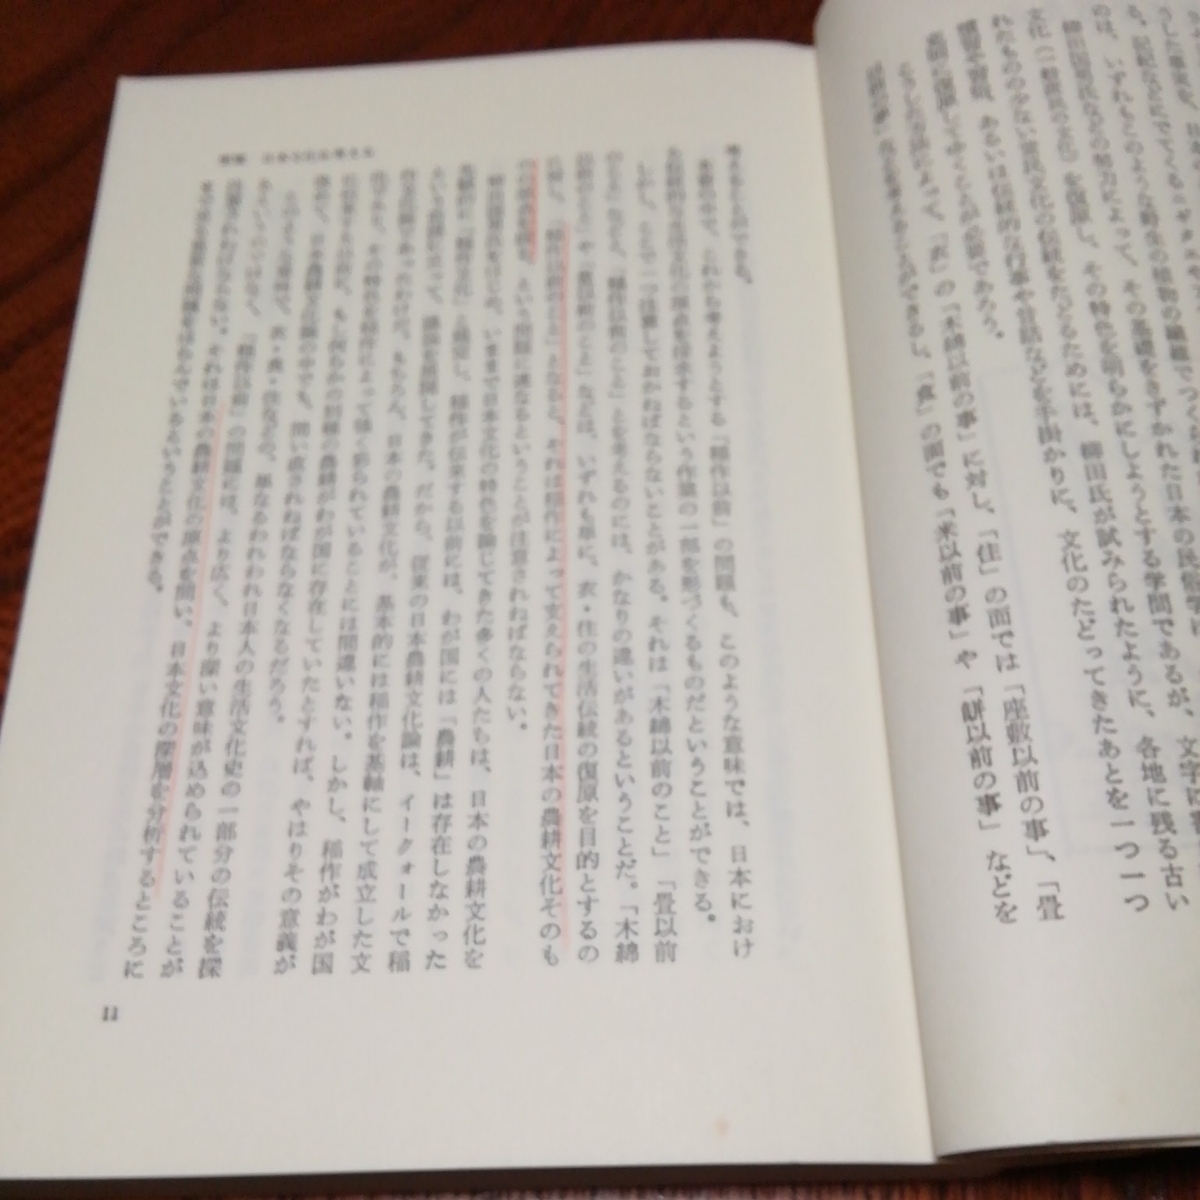 のは、いずれもこのような野生の植物の繊維でつくられ
る。記紀などにでてくる
柳田国男氏などの努力によって、その基礎をきずかれた日本の民俗学は、
文化(一般常民の文化)を復原し、その特色を明らかにしようとする学問であるが、文字に
れたものの少ない常民文化の伝統をたどるためには、柳田氏が試みられたように、各地に残る古い
慣習や習俗、あるいは伝統的な行事や昔話などを手掛かりに、文化のたどってきたあとを一つ一つ
克明に復原してゆくことが必要であろう。
こうした方法によって、「衣」の「木綿以前の事」に対し、「住」の面では「座敷以前の事」、「畳
以前の事」なども考えることができるし、「食」の面でも「米以前の事」や「餅以前の事」などを
考えることができる。
本書の中で、これから考えようとする「稲作以前」の問題も、このような意味では、日本におけ
る伝統的な生活文化の原点を探求するという作業の一部を形づくるものだということができる。
しかし、ここで一つ注意しておかねばならないことがある。それは「木綿以前のこと」「畳以前
のこと」などと、「稲作以前のこと」とを考えるのには、かなりの違いがあるということだ。「木綿
以前のこと」や「畳以前のこと」などは、いずれも単に、衣・住の生活伝統の復原を目的とするの
に対し、「稲作以前のこと」となると、それは稲作によって支えられてきた日本の農耕文化そのも
のの原点を問う、という問題に連なるということが注意されねばならない。
柳田国男氏をはじめ、いままで日本文化の特色を論じてきた多くの人たちは、日本の農耕文化を
先験的に「稲作文化」と規定し、稲作が伝来する以前には、わが国には「農耕」は存在しなかった
という前提に立って、議論を展開してきた。だから、従来の日本農耕文化論は、イークォールで稲
作文化論であったわけだ。もちろん、日本の農耕文化が、基本的には稲作を基軸にして成立した文
化であり、その特色も稲作によって強く彩られていることには間違いない。しかし、稲作がわが国
に伝来する以前に、もし何らかの別種の農耕がわが国に存在していたとすれば、やはりその意義が
改めて、日本農耕文化論の中でも、問い直されねばならなくなるだろう。
このような意味で、衣・食・住などの、単なるわれわれ日本人の生活文化史の一部分の伝統を探
るというだけでなく、「稲作以前」の問題には、より広く、より深い意味が込められていることが
注意されねばならない。それは日本の農耕文化の原点を問い、日本文化の深層を分析するところに
まで及ぶ重要な問題をはらんでいるということができる。
11